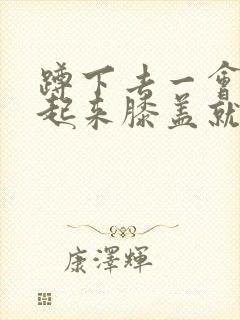 蹲下去一會
起來膝蓋就
康澤輝